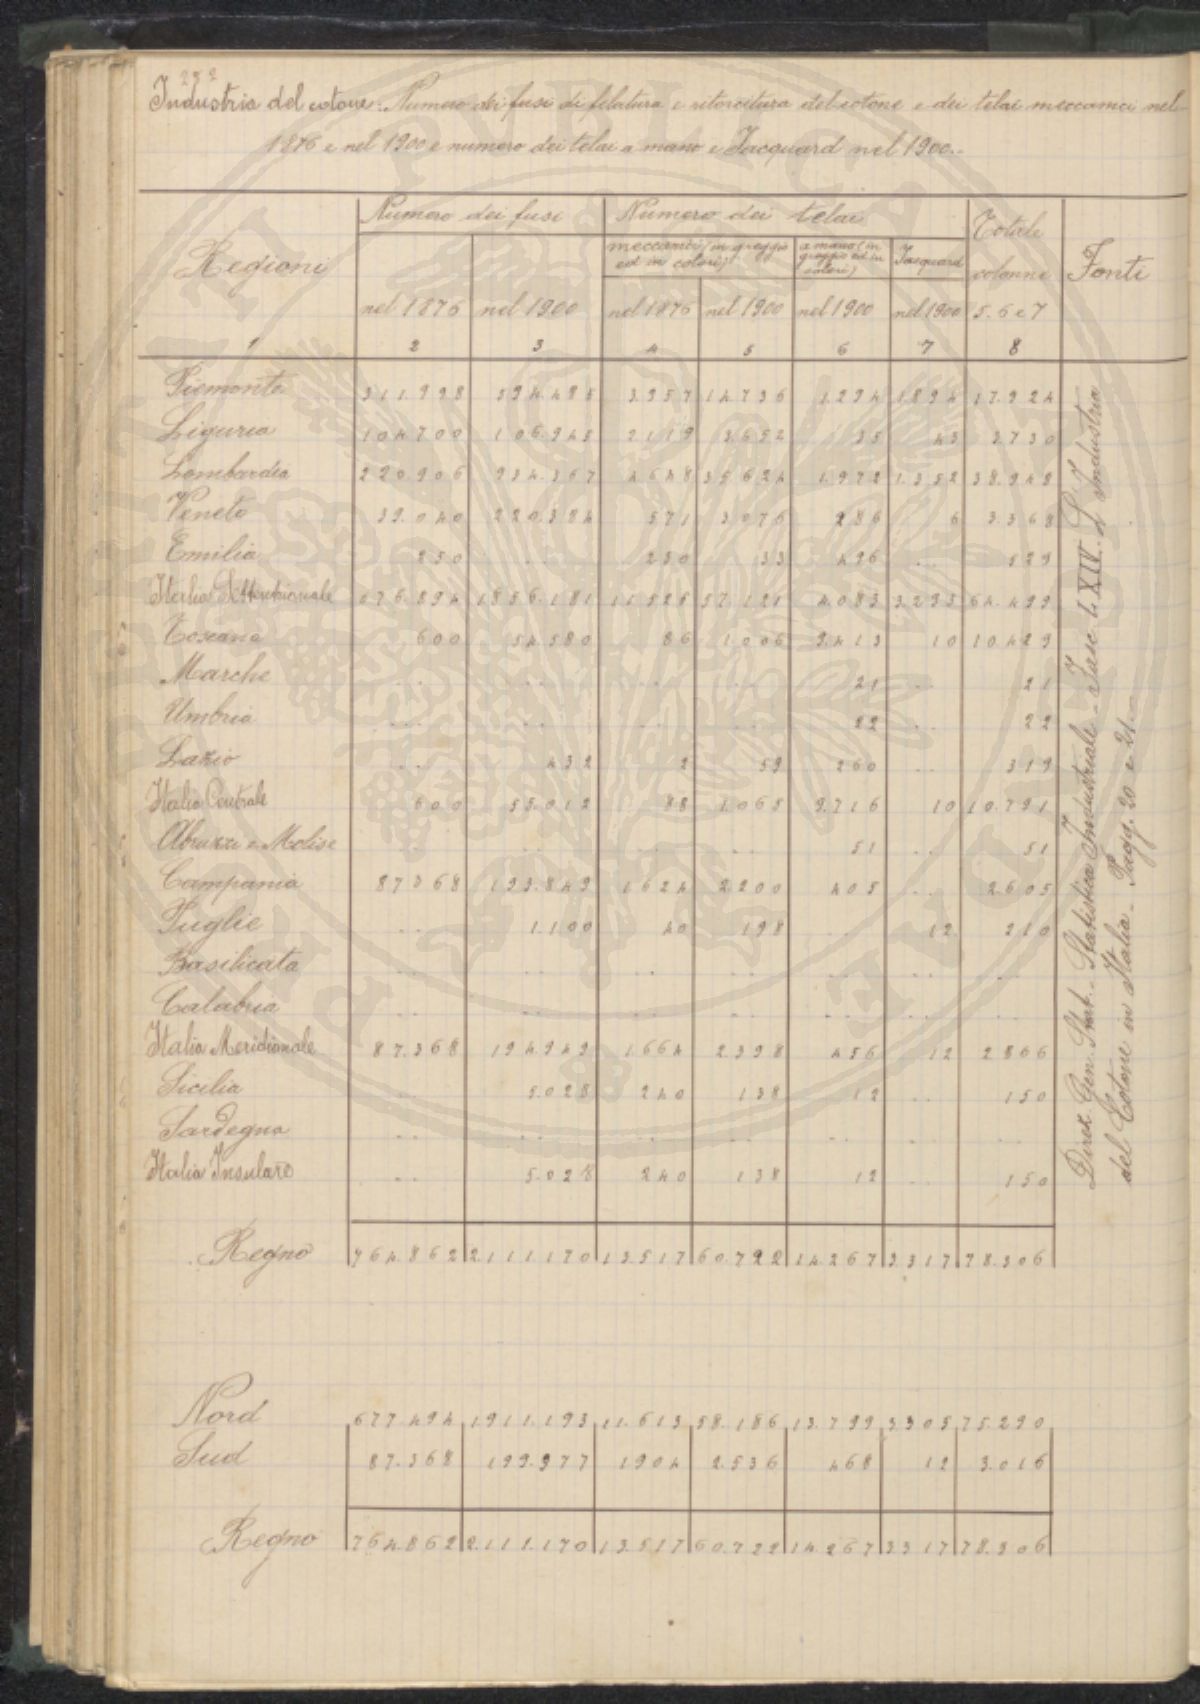 292
Industria del cotone: Numero dei fusi di filatura e ritorcitura del cotone e dei telai meccanici nel
1876 e nel 1900 e numero dei telai a mano e Jacquard nel 1900.-
Regioni Numero dei fusi Numero dei telai Totale colonne 5. 6 e 7 Fonti
meccanici (in greggio ed in colori) a mano (in greggio ed in colori) Jacquard
nel 1876 nel 1900 nel 1876 nel 1900 nel 1900 nel 1900
1 2 3 4 5 6 7 8
Piemonte 311.998 594.485 3.957 14.736 1.294 1894 17.924
Liguria 104700 106.945 2119 3.652 35 43 3730
Lombardia 220.906 934.367 4648 35624 1.972 1.352 38.948
Veneto 39.040 220.384 571 3.076 286 6 3.368
Emilia 250 .. 230 33 496 .. 529
Italia Settentrionale 676.894 1856.181 11.525 57.121 4.083 3.295 64.499
Toscana 600 54.580 86 1.006 9.413 10 10.429
Marche .. .. .. .. 21 .. 21
Umbria .. .. .. .. 22 .. 22
Lazio .. 432 2 59 260 .. 319
Italia Centrale 600 55.012 88 1.065 9.716 10 10.791
Abruzzi e Molise .. .. .. .. 51 .. 51
Campania 87368 193.849 1624 2200 405 .. 2605
Puglie .. 1.100 40 198 .. 12 210
Basilicata .. .. .. .. .. .. ..
Calabria .. .. .. .. .. .. ..
Italia Meridionale 87.368 194949 1664 2398 456 12 2866
Sicilia .. 5.028 240 138 12 .. 150
Sardegna .. .. .. .. .. .. ..
Italia Insulare .. 5.028 240 138 12 .. 150
Regno 764.862 2.111.170 13.517 60.722 14.267 3.317 78.306
Nord 677.494 1911.193 11.613 58.186 13.799 3305 75.290
Sud 87.368 199.977 1904 2.536 468 12 3.016
Regno 764.862 2.111.170 13.517 60.722 14.267 3317 78.306
Direz. Gen. Stat. - Statistica Industriale - Fasc. L. XIV. L'Industria
del Cotone in Italia - Pagg. 20 e 21.-